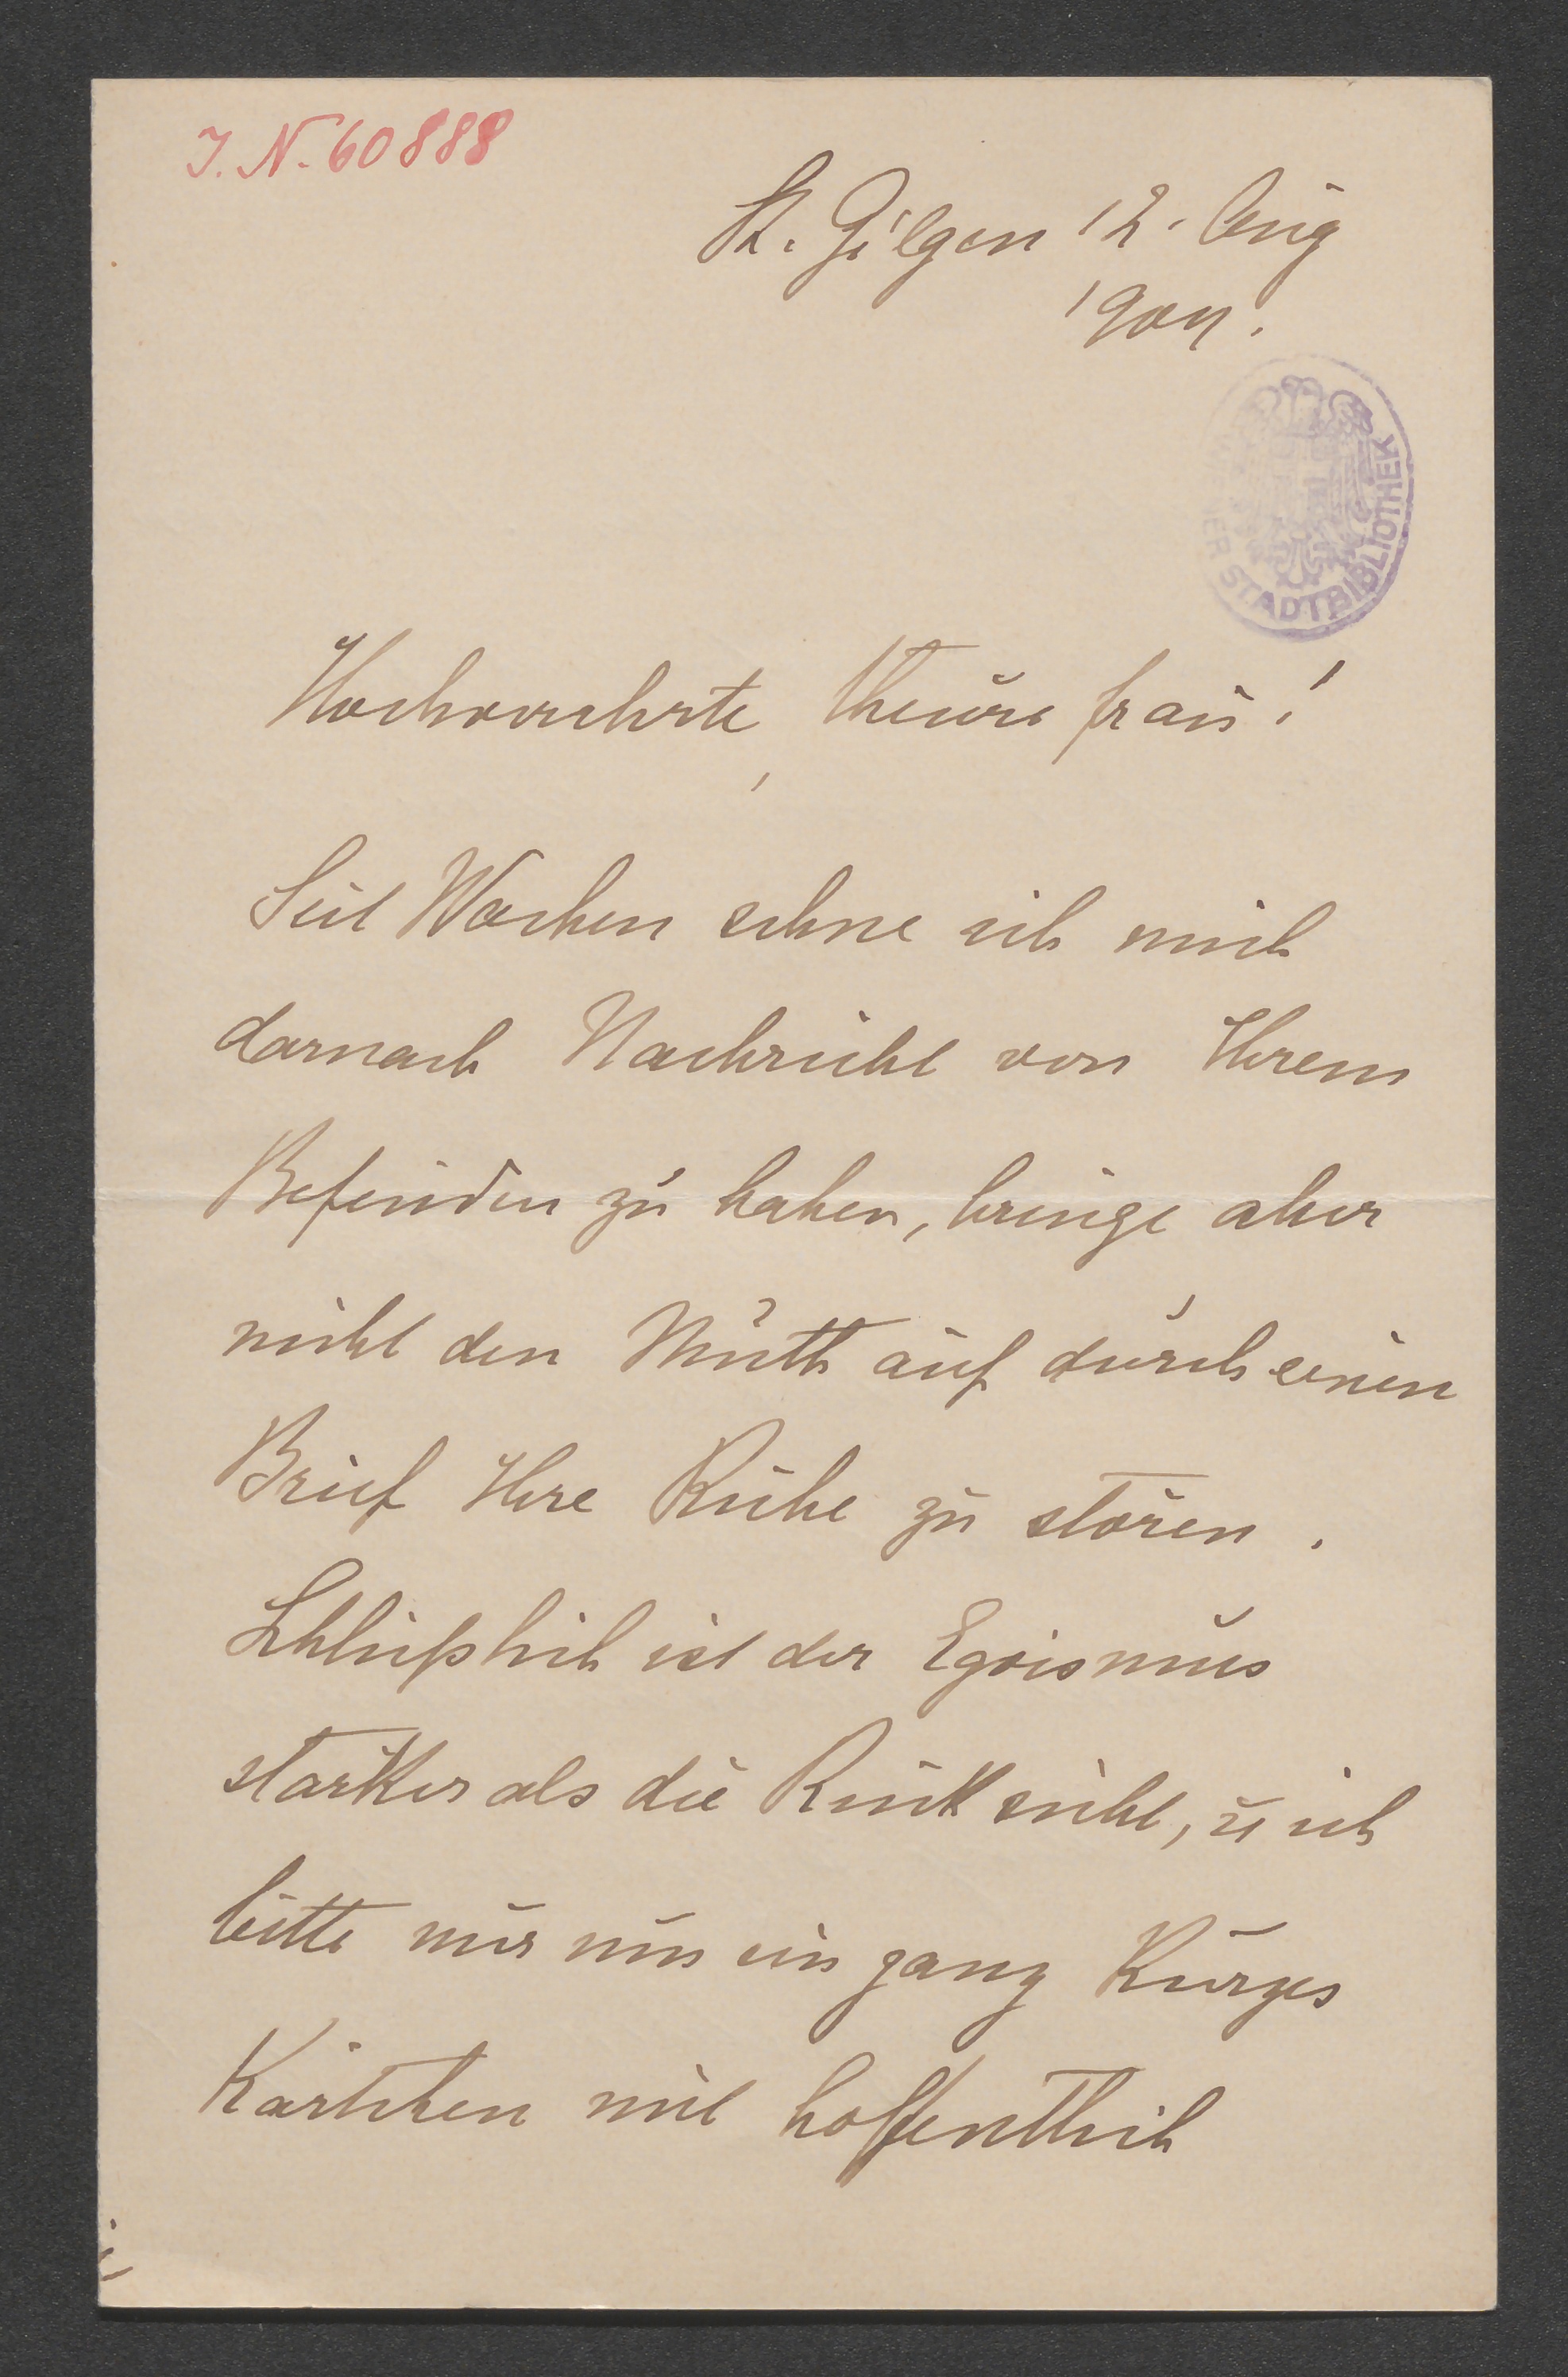 I. N. 60888
St. Gilgen 12. Aug
1904.
WIENER STADTBIBLIOTHEK
Hochverehrte, theure Frau!
Seit Wochen sehne ich mich
darnach Nachricht von Ihrem
Befinden zu haben, bringe aber
nicht den Muth auf durch einen
Brief Ihre Ruhe zu stören.
Schließlich ist der Egoismus
stärker als die Rücksicht, u ich
bitte nur um ein ganz kurzes
Kärtchen mit hoffentlich